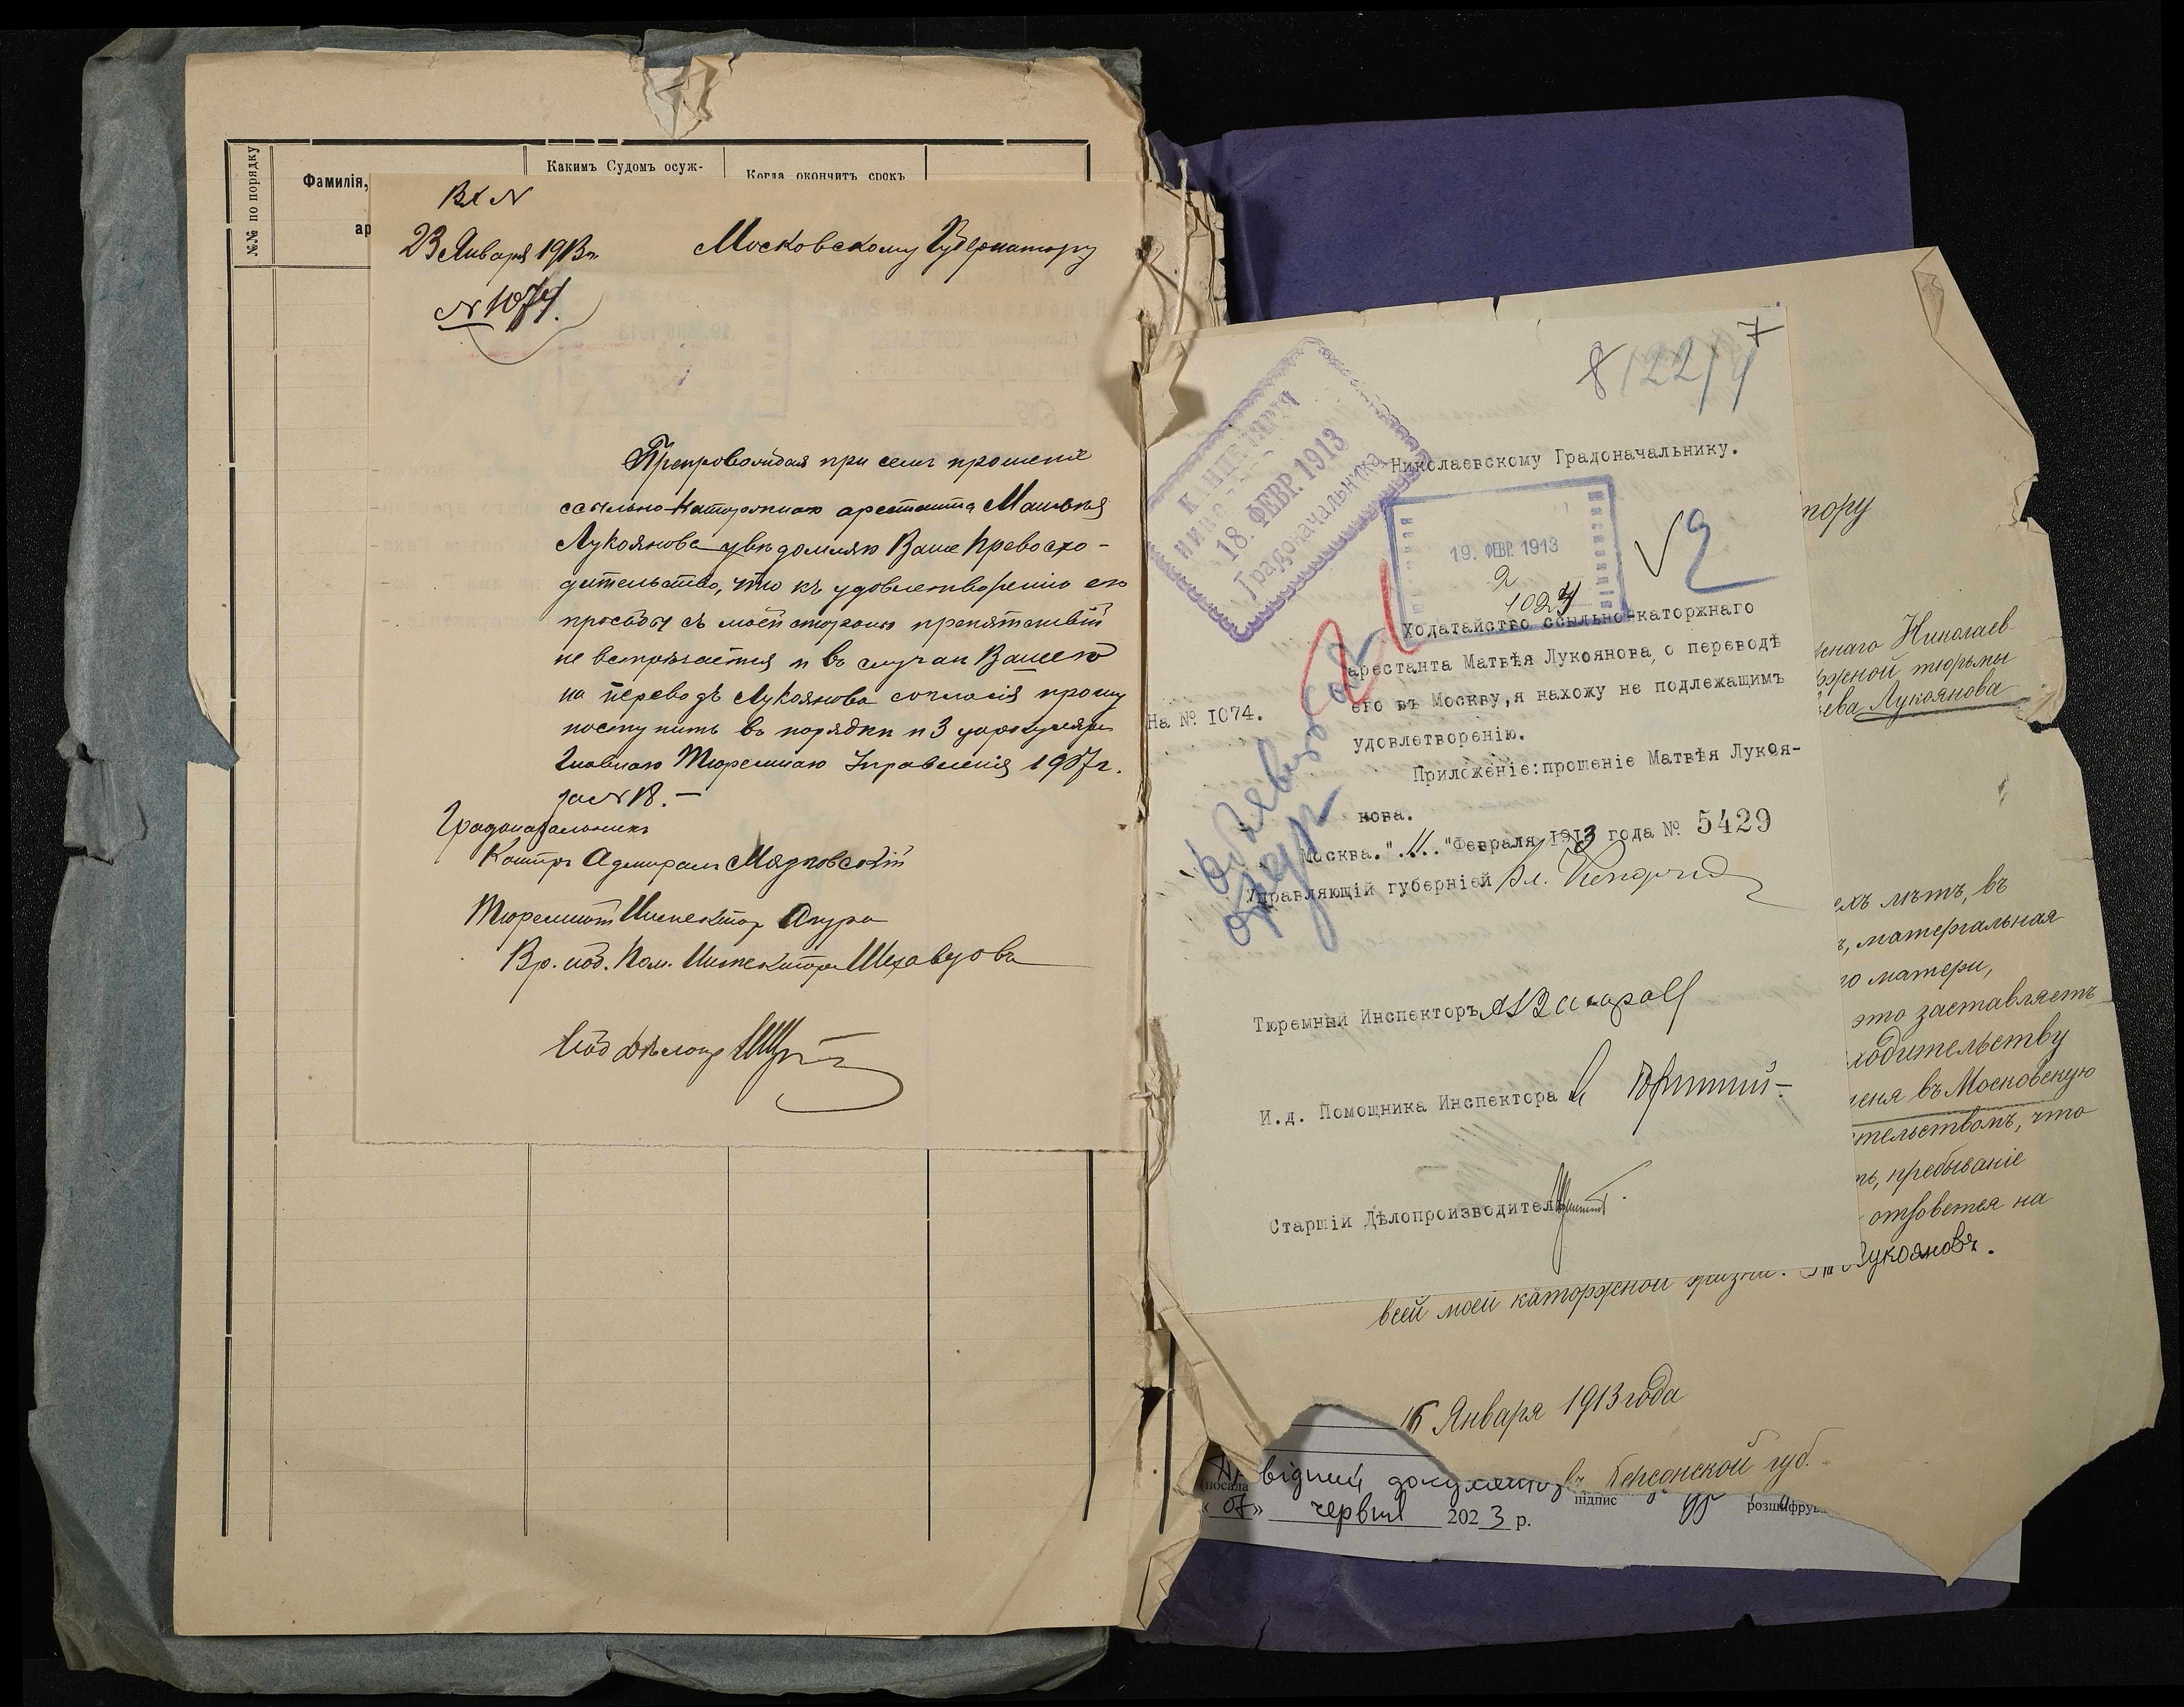 №№ по порядку
Фамилія,
ар
Какимъ Судомъ осуж-
Когда окончитъ срокъ
Вх N
23 Января 1913 г.
N 1074.
Московскому Губернатору
Препровождая при семъ прошеніе
ссыльно-каторжнаго арестанта Матвѣя
Лукоянова увѣдомляю Ваше Превосхо-
дительство, что къ удовлетворенію его
просьбы съ моей стороны препятствій
не встрѣчается и въ случаѣ Вашего
на переводъ Лукоянова согласія прошу
поступить въ порядкѣ п 3 циркуляра
Главнаго Тюремнаго Управленія 1907 г.
за N 18. —
Градоначальникъ
Контръ Адмиралъ Мязговскій
Тюремный Инспекторъ
Вр. исб. Пом. Инспектора
7
8
122/9
КАНЦЕЛЯРІЯ
18. ФЕВР. 1913
Градоначальника
Николаевскому Градоначальнику.
19. ФЕВР. 1913
2
1024
Ходатайство ссыльно-каторжнаго
арестанта Матвѣя Лукоянова, о переводѣ
его въ Москву, я нахожу не подлежащимъ
удовлетворенію.
На № 1074.
Приложеніе: прошеніе Матвѣя Лукоя-
нова.
Москва. "11" Февраля 1913 года № 5429
Управляющій губерніей
Тюремный Инспекторъ
И.д. Помощника Инспектора
Старшій Дѣлопроизводитель
тору
жнаго Николаев
ржной тюрьмы
ева Лукоянова
ехъ лѣтъ, въ
, матеріальная
го матери,
это заставляетъ
ходительству
меня въ Московскую
тельствомъ, что
ть, пребываніе
отзовется на
всей моей каторжной жизни.
Лукояновъ.
15 Января 1913 года
Херсонской губ.
(посада
підпис
розшифрув
« 07 » червня 2023 р.